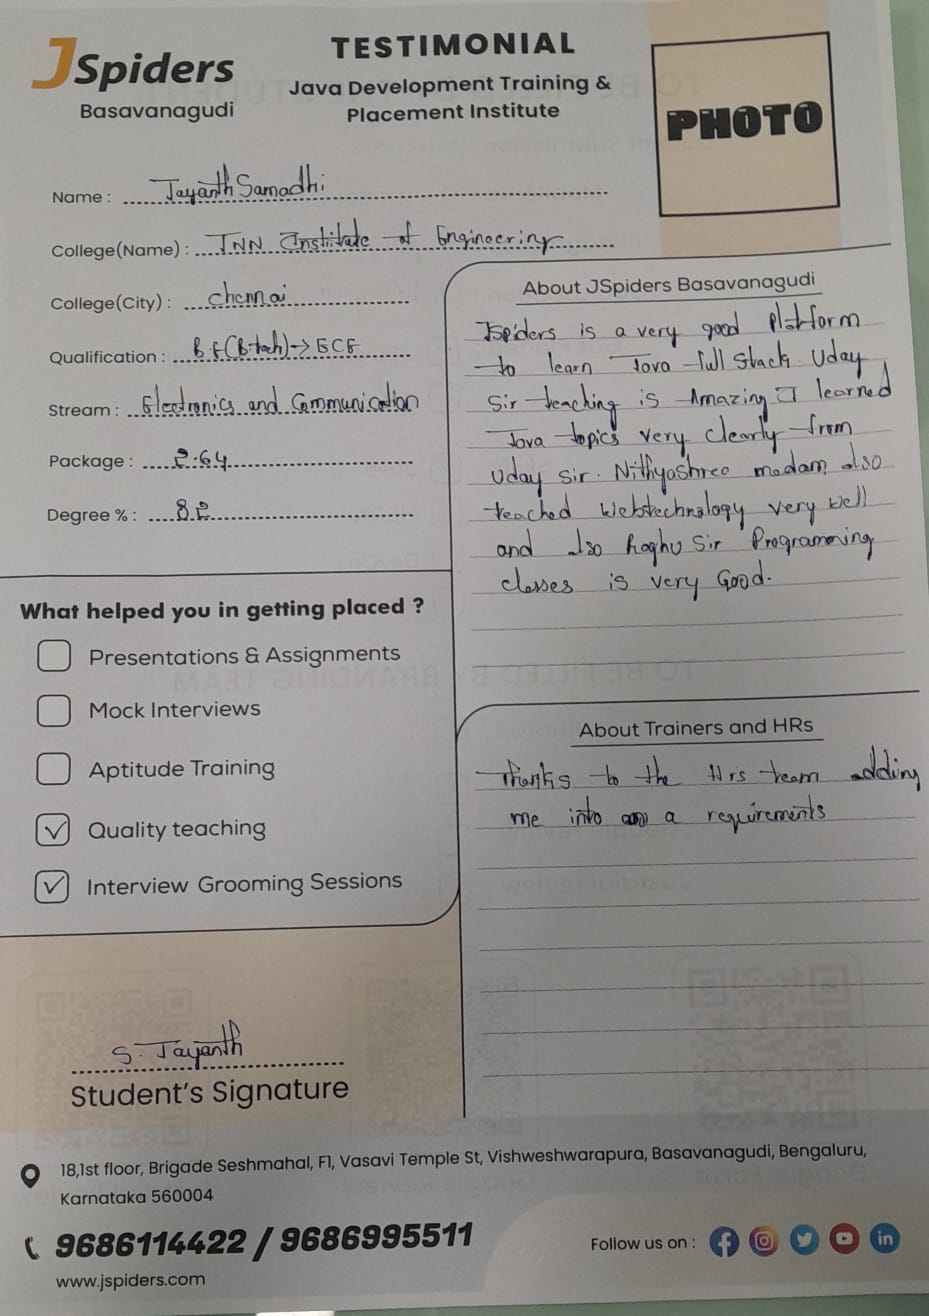 JSpiders
Basavanagudi
TESTIMONIAL
Java Development Training &
Placement Institute
PHOTO
Name : Jayanth Samadhi
College(Name) : JNN Institute of Engineering
College(City) : chennai
Qualification : B.E(B.tech)→ECE
Stream : Electronics and Communication
Package : 2.64
Degree % : 82
What helped you in getting placed ?
Presentations & Assignments
Mock Interviews
Aptitude Training
✓ Quality teaching
✓ Interview Grooming Sessions
About JSpiders Basavanagudi
Jspiders is a very good platform
to learn Java full stack. Uday
Sir teaching is Amazing I learned
Java topics very clearly from
Uday sir. Nithyashree madam also
teached Webtechnology very well
and also Raghu Sir Programming
classes is very Good.
About Trainers and HRs
Thanks to the Hrs team adding
me into a requirements
S. Jayanth
Student's Signature
18,1st floor, Brigade Seshmahal, F1, Vasavi Temple St, Vishweshwarapura, Basavanagudi, Bengaluru,
Karnataka 560004
9686114422 / 9686995511
www.jspiders.com
Follow us on :